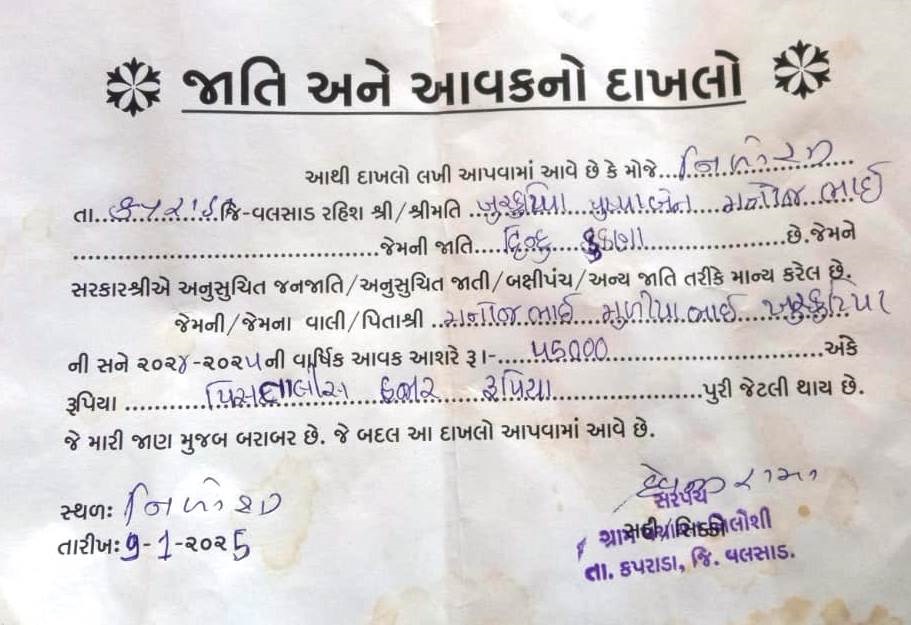 જાતિ અને આવકનો દાખલો
આથી દાખલો લખી આપવામાં આવે છે કે મોજે
તા. જિ-વલસાડ રહિશ શ્રી/શ્રીમતિ મનોજ ભાઈ
જેમની જાતિ હિન્દુ કુકણા છે.જેમને
સરકારશ્રીએ અનુસુચિત જનજાતિ/અનુસુચિત જાતી/બક્ષીપંચ/અન્ય જાતિ તરીકે માન્ય કરેલ છે.
જેમની/જેમના વાલી/પિતાશ્રી મનોજ ભાઈ ભાઈ
ની સને ૨૦૨૪-૨૦૨૫ની વાર્ષિક આવક આશરે રૂ।- ૪૫૦૦૦ અંકે
રૂપિયા પિસ્તાલીસ હજાર રૂપિયા પુરી જેટલી થાય છે.
જે મારી જાણ મુજબ બરાબર છે. જે બદલ આ દાખલો આપવામાં આવે છે.
સ્થળઃ
તારીખઃ 9-1-૨૦૨5
સરપંચ
ગ્રામ
તા. કપરાડા, જિ. વલસાડ.